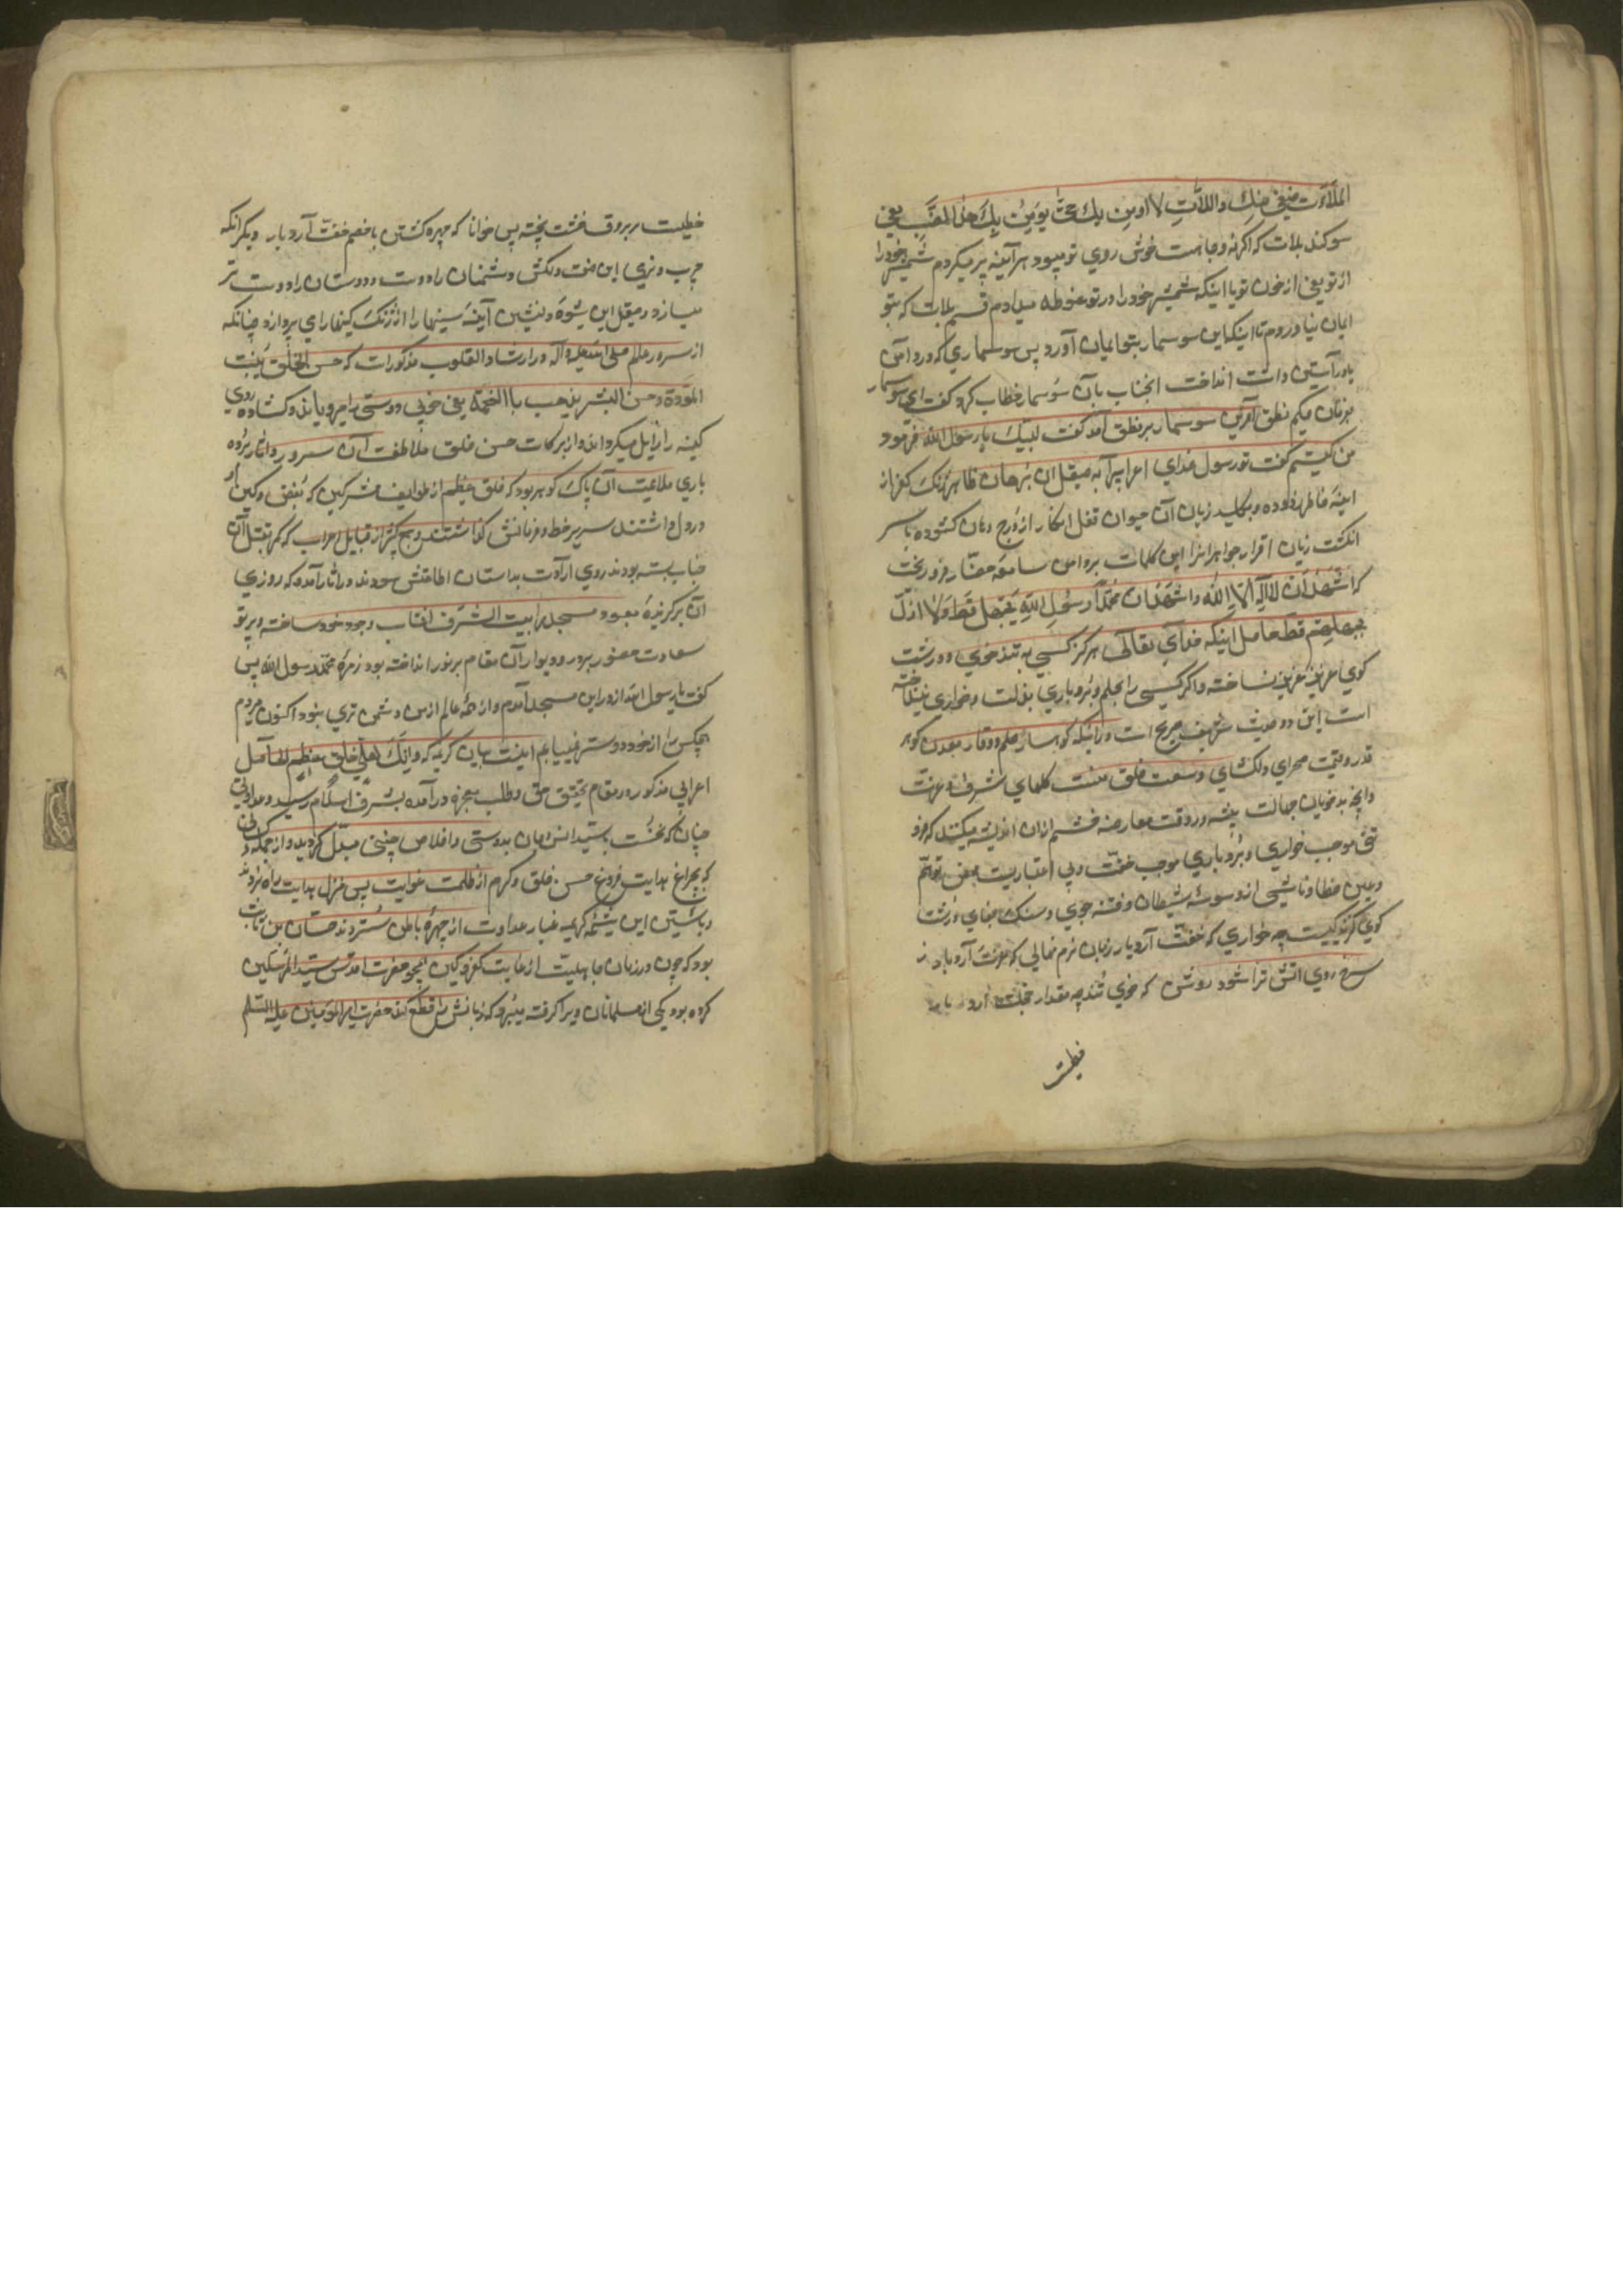 سیفی منك واللات لا اومن بك حتی یؤمن بك هذا الضب یعنی
سوکند بلات که اگر نه وجاهت خوش روی تو میبود هر آینه پر میکردم شمشیر خود را
از تو یعنی از خون تو یا اینکه شمشیر خود را در تو غوطه میدادم قسم بلات که بتو
ایمان نیاوردم تا اینکه این سوسمار بتو ایمان آورد پس سوسماری که در دامن
یا در آستین داشت انداخت انجناب بآن سوسمار خطاب کرد و گفت ای سوسمار
نطق آفرین سوسمار بر نطق آمد گفت لبیك یا رسول الله فرمود
من کیستم گفت تو رسول خدای اعرابی را به صیقل آن برهان ظاهر زنك کفر از
آینه خاطر زدوده و بکلید زبان آن حیوان قفل انکار از درج دهان کشوده با سر
انکشت زبان اقرار جواهر این کلمات بر دامن سامعه حضار فرو ریخت
که اشهد ان لا اله الا الله و اشهد ان محمدا رسول الله یجهل قط ولا اذل
بحلم قط حاصل اینکه خدای تعالی هرکز کسی به تند خوی و درشت
کوی عزیز نساخته و اکر کسی را بحلم و بردباری بذلت و خواری نینداخته
است این دو حدیث شریف صریح است در اینکه کوهسار حلم و وقار معدن کوهر
قدر و قیمت صحرای دلکشای وسعت خلق منبت کلهای شرف و عزت
وانچه بدخویان جهالت پیشه در وقت معارضه خشم ازان اندیشه میکنند که فرو
تنی موجب خواری و بردباری موجب خفت و بی اعتباریست محض توهم
وعین خطا و ناشی از وسوسه شیطان و فتنه جوی و سنك جفای درشت
کوی کزند کیست چه خواری که خفت آرد بار زبان نرم نمالی که عزت آرد بار ز
سرخ روی اتش ترا شود روشن که خوی تند چه مقدار خجلت آرد بار
خطیست بر بروق خشت پخته پس خوانا که چهره کشتن با خصم خفت آرد بار و دیکر انکه
چرب و نرمی این صفت دلکش دشمنان را دوست و دوستان را دوست تر
میسازد و صیقل این شیوه دلنشین آینه سینها را از زنك کینها رای پردازد چنانکه
از سرور عالم صلی الله علیه و آله در ارشاد القلوب مذکورات که حسن الخلق یثبت
المودة و حسن البشر یذهب بالسخیمة یعنی خوبی دوستی را میرویاند و کشاده روی
کینه را زایل میکرداند و از برکات حسن خلق ملاطفت آن سرور و اثار بردباری
ملاعیت آن پاك کوهر بود که خلق عظیم از طوایف مشرکین که بغض و کین او
در دل داشتند سر بر خط فرمانش گذاشتند و جمع کثیر از قبایل اعراب که کمر بقتل آن
جناب بسته بودند روی ارادت بداستان اطاعتش سودند در اثار آمده که روزی
آن برکزیده معبود مسجد را بیت الشرف افتاب وجود خود ساخته و پرتو
سعادت حضور بر در و دیوار آن مقام پر نور انداخته بود زمره محمد رسول الله پس
گفت یا رسول الله از در این مسجد آمدم و از همه عالم از من دشمن تری نبود اکنون میروم
هیچکس را از خود دوستر نمییابم اینست بیان کریمه که وانك لعلی خلق عظیم الحاصل
اعرابی مذکور در مقام تحقیق حق و طلب معجزه در آمده بشرف اسلام رسید و عداوتی
چنان که نخست با سید انس و جان بدوستی و اخلاص چنین مبدل کردید و از جمله کسانی
که بچراغ هدایت فروغ حسن خلق و کرم از ظلمت غوایت پی بمنزل هدایت راه بردند
و باستین این شیمه کریمه غبار عداوت از چهره باطن ستردند حسان بن ثابت
بود که چون در زمان جاهلیت از غایت کفر و کین هجو حضرت اقدس سید المرسلین
کرده بود یکی از مسلمانان ویرا گرفته میبرد که زبانش را قطع کند حضرت امیر المؤمنین علیه السلام